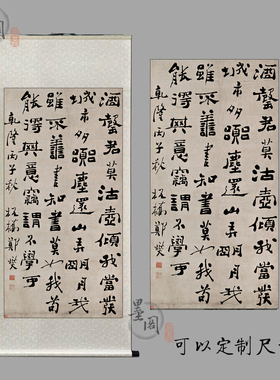 酒罄君莫沽壺傾我當發
城市多囂塵還山弄明月我
雖不善書知書莫如我苟
能得其意竊謂不學可
乾隆丙子秋板橋鄭燮
酒罄君莫沽壺傾我當發
城市多囂塵還山弄明月我
雖不善書知書莫如我苟
能得其意竊謂不學可
乾隆丙子秋板橋鄭燮
可以定制尺